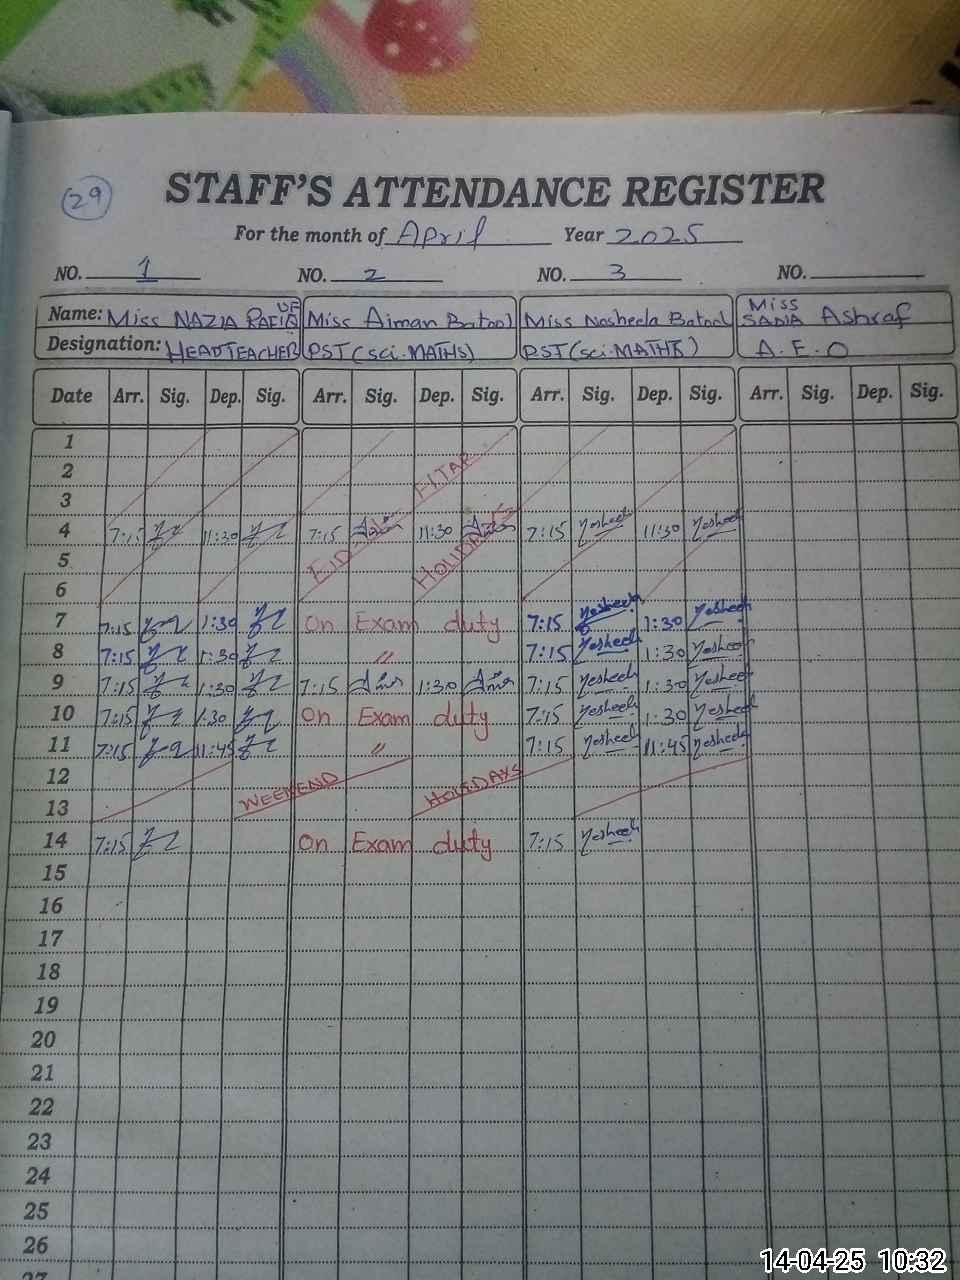 29
STAFF'S ATTENDANCE REGISTER
For the month of April Year 2025
NO. 1 NO. 2 NO. 3 NO.
Name: Miss NAZIA RAFIQ Miss Aiman Batool Miss Nosheela Batool Miss SADIA Ashraf
Designation: HEADTEACHER PST (sci-MATHS) PST (sci-MATHS) A.E.O
Date Arr. Sig. Dep. Sig. Arr. Sig. Dep. Sig. Arr. Sig. Dep. Sig. Arr. Sig. Dep. Sig.
1
2 FITAR
3
4 7:15 11:30 7:15 11:30 7:15 11:30
5 EID HOLIDAYS
6
7 7:15 1:30 On Exam duty 7:15 1:30
8 7:15 1:30 " 7:15 1:30
9 7:15 1:30 7:15 1:30 7:15 1:30
10 7:15 1:30 On Exam duty 7:15 1:30
11 7:15 11:45 " 7:15 11:45
12 WEEKEND HOLIDAYS
13
14 7:15 On Exam duty 7:15
15
16
17
18
19
20
21
22
23
24
25
26
27
14-04-25 10:32